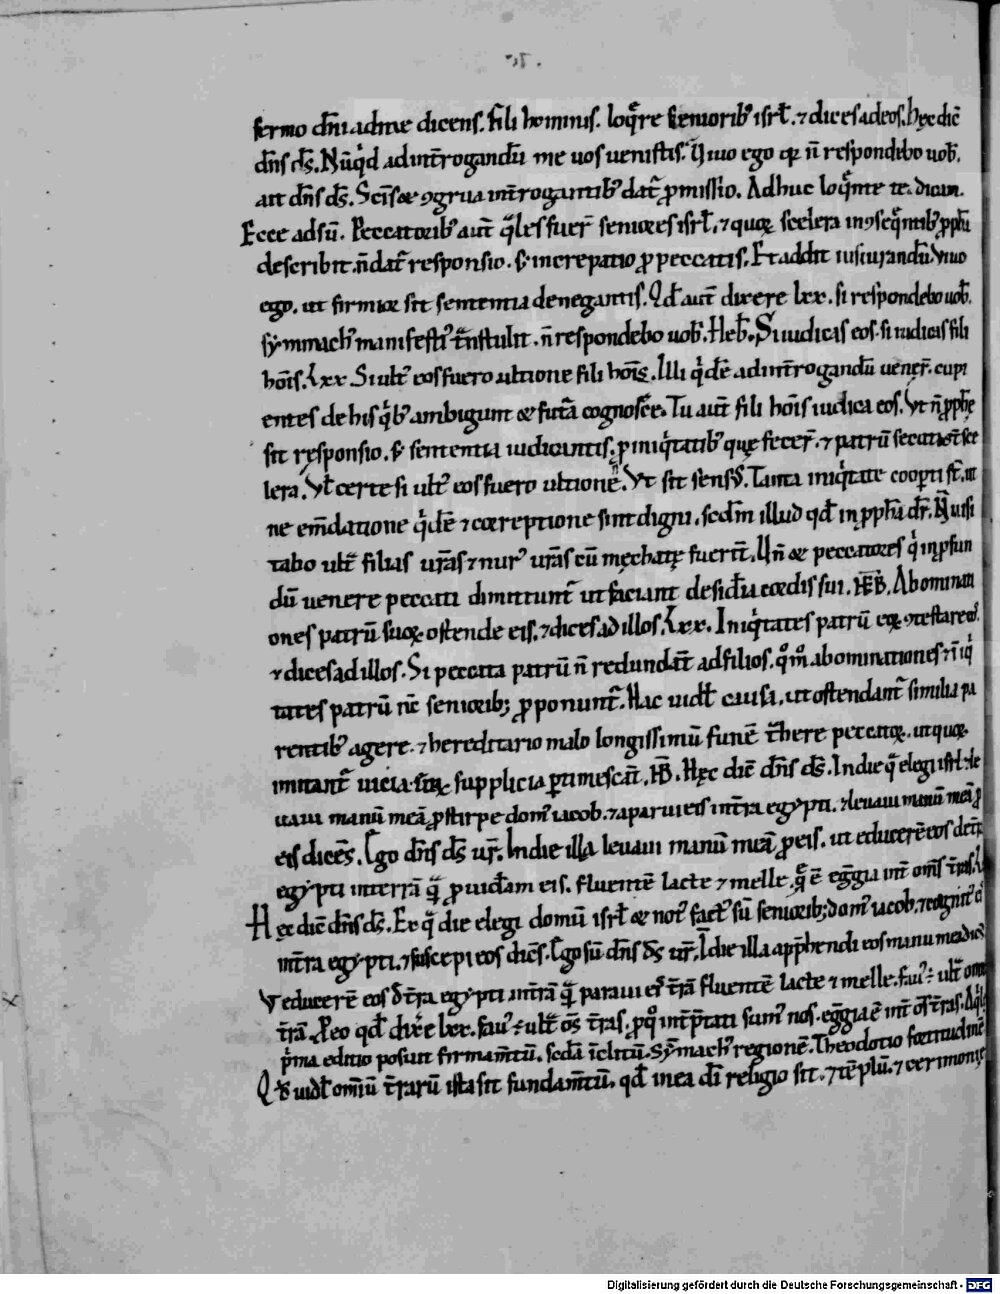 sermo dñi ad me dicens. fili hominis. loq̄re seniorib' isrł. ⁊ dices ad eos. hęc dic̄
dñs d̄s. Nūq̇d ad int̄rogandū me vos uenistis. Uiuo ego q̇ ñ respondebo uob̄.
ait dñs d̄s. Sc̄is & ꝯgrua int̄rogantib' dat̄ ꝓmissio. Adhuc loq̄nte te. dicam.
Ecce adsū. Peccatorib' aut̄ q̄les fuer̄ seniores isrł. ⁊ quoꝝ scelera in ꝯseq̄ntib' ꝓph̄a
describit. ñ dat̄ responsio. s; increpatio ꝓ peccatis. Et addit iusiurandū. Viuo
ego. ut firmior sit sententia denegantis. Qđ aut̄ dixere lxx. si respondebo uob̄.
sȳmmach' manifesti' t̄nstulit. ñ respondebo uob̄. Heb̄. Si iudicas eos. si iudicas fili
hōis. Lxx. Si ult' eos fuero ultione fili hōis. Illi q̇dē ad int̄rogandū uener̄. cupi
entes de his q̇b' ambigunt & futa cognosc̄e. Tu aut̄ fili hōis iudica eos. Vt ñ ꝓph̄ę
sit responsio. s; sententia iudicantis. ꝓ iniq̇tatib' quę fecer̄. ⁊ patrū sectati st̄ sce
lera. Vł certe si ult' eos fuero ultione. Vt sit sens'. Tanta iniq̇tate coopti st̄. ut
ne em̄datione q̇dē ⁊ correptione sint digni. sedm illud qđ in ꝓph̄a dr̄. Ñ uisi
tabo ult' filias ur̄as ⁊ nur' ur̄as cū męchatę fuerīt. Uñ & peccatores q̇ in ꝓfun
dū uenere peccati dimittunt̄ ut faciant desideriū cordis sui. HEB̄. Abominati
ones patrū suoꝝ ostende eis. ⁊ dices ad illos. Lxx. Iniq̇tates patrū eoꝝ ꝯtestare eis.
⁊ dices ad illos. Si peccata patrū ñ redundāt ad filios. q̊m̊ abominationes ⁊ iniq̇
tates patrū nc̄ seniorib; ꝓponunt̄. Hac uidł causa. ut ostendant̄ similia pa
rentib' agere. ⁊ hereditario malo longissimū funē t̄here peccatoꝝ. ut quoꝝ
imitant̄ uicia. eoꝝ supplicia ꝑtimescāt. HB̄. Hęc dic̄ dñs d̄s. In die q̄ elegi isrł. ⁊ le
uaui manū meā ꝓ stirpe dom' iacob. ⁊ aparui eis in t̄ra egypti. ⁊ leuaui manū meā ꝓ
eis dicēs. Ego dñs d̄s ur̄. In die illa leuaui manū meā ꝓ eis. ut educerē eos de t̄ra
egypti in terrā q̄ ꝓuidam eis. fluentē lacte ⁊ melle. q̄ ē egregia int̄ om̄s t̄ras. Lxx
Hęc dic̄ dñs d̄s. Ex q̄ die elegi domū isrł & not' fact' sū seniorib; dom' iacob. ⁊ cognit'
in t̄ra egypti. ⁊ suscepi eos dicēs. Ego sū dñs d̄s ur̄. I die illa app̄hendi eos manu mea dicēs
Vt educerē eos d̄ t̄ra egypti in t̄rā q̄ paraui eis t̄rā fluentē lacte ⁊ melle. fau' ÷ ult' om̄ē
t̄rā. Pro eo qđ dix̄e lxx. fau' ÷ ult' om̄s t̄ras. ꝓ q̊ int̄ꝑtati sum' nos. egregia ē int̄ om̄s t̄ras. Aq̇le
p̄ma editio posuit firmam̄tū. sedā ĩclitū. Sȳmach' regionē. Theodotio fortitudinē
Qđ uidł om̄iū t̄rarū ista sit fundam̄tū. qđ in ea dī religio sit. ⁊ tēplū. ⁊ cerimonię